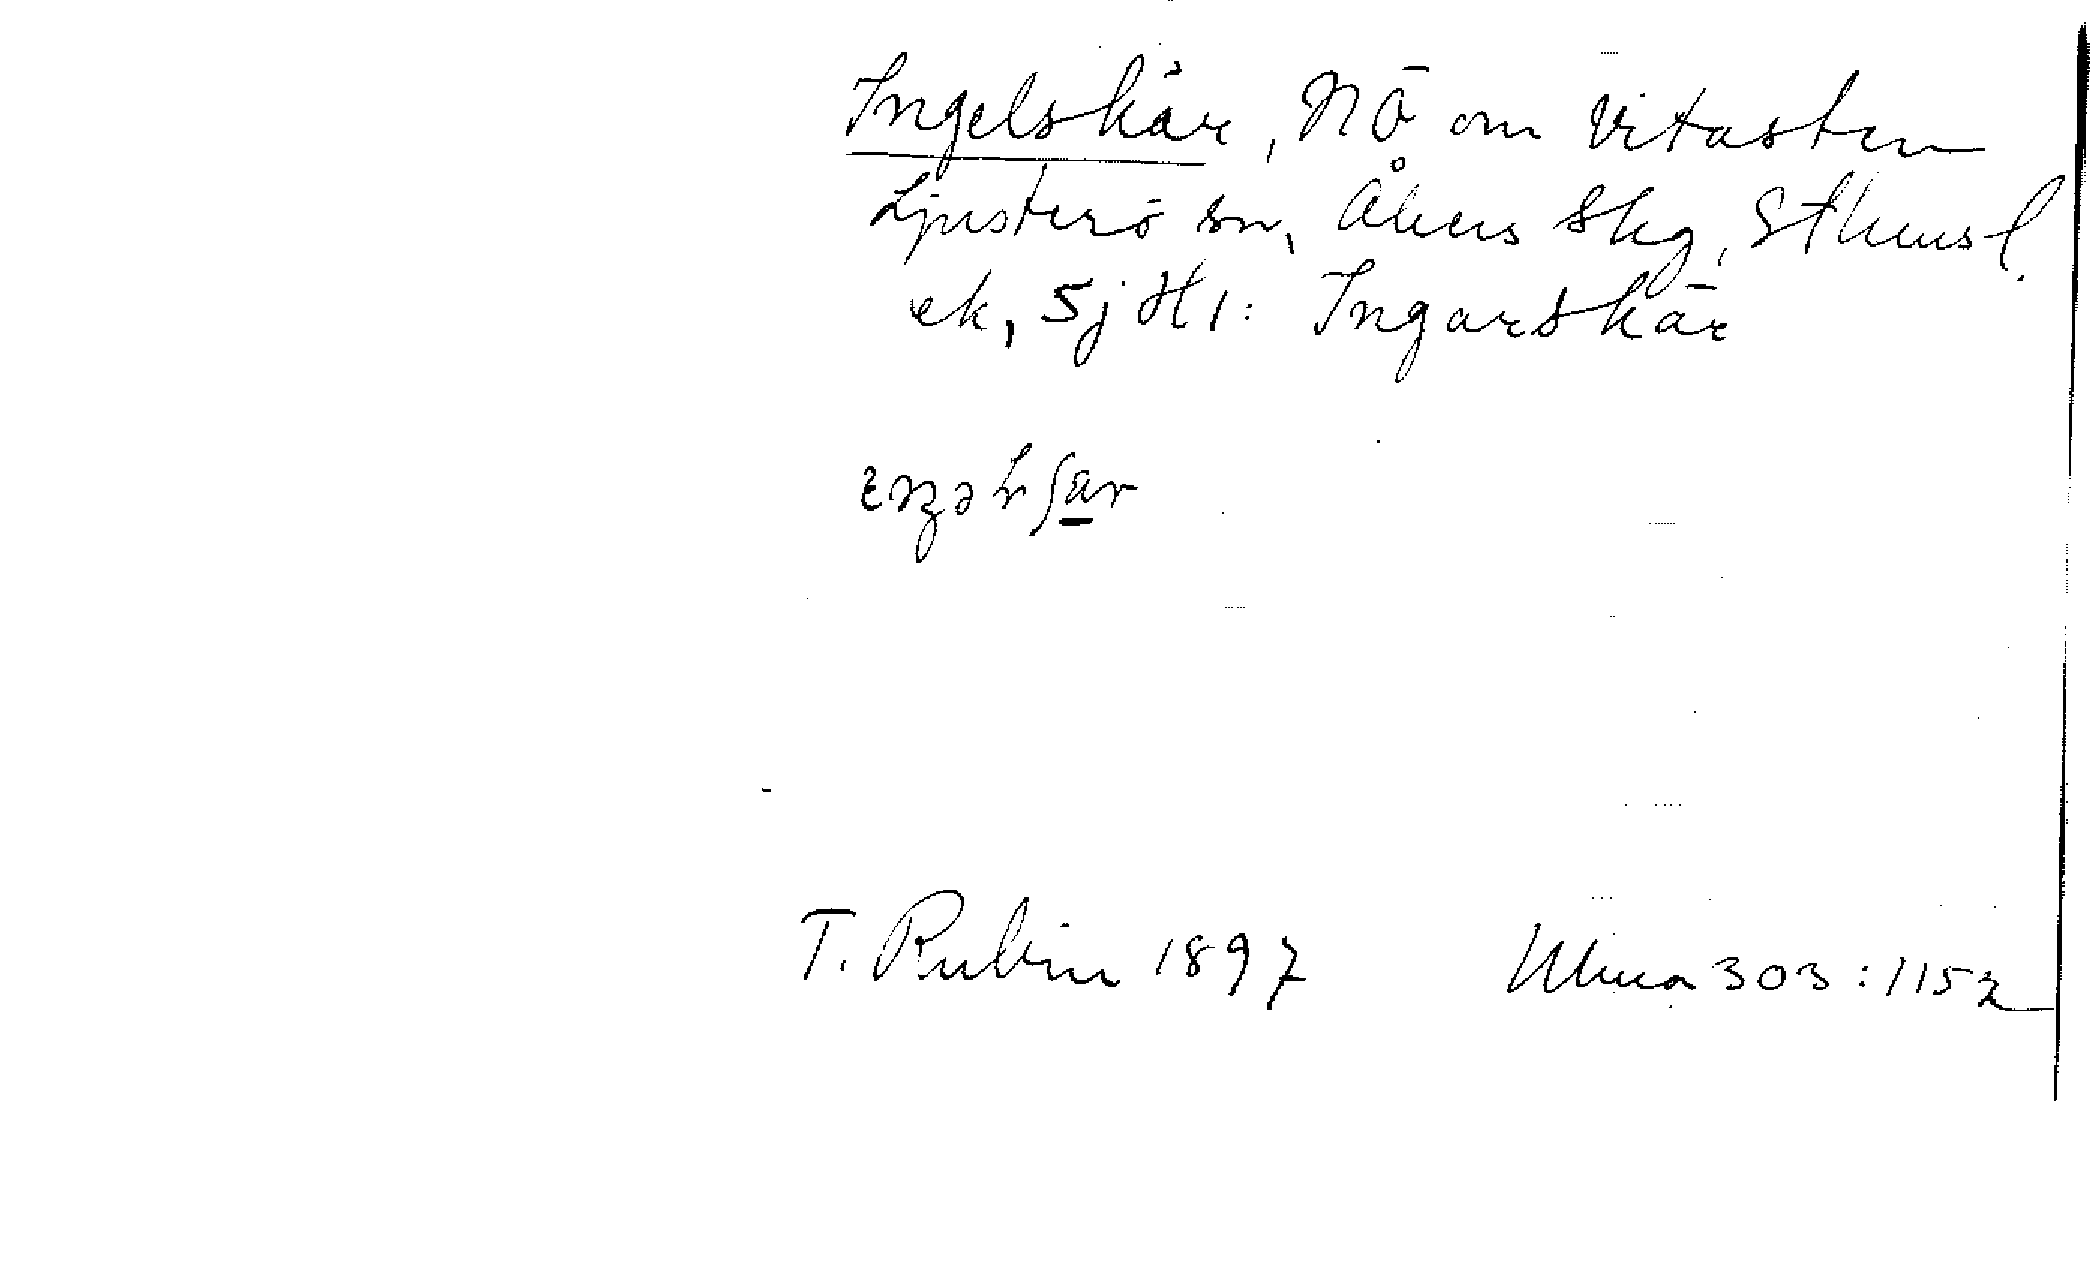 Ingelskär, NÖ om Vitasten
Ljusterö sn, Åkers skg, Sthms l.
ek, Sj H1: Ingarskär
T. Rubin 1897 Ulma 303:1152